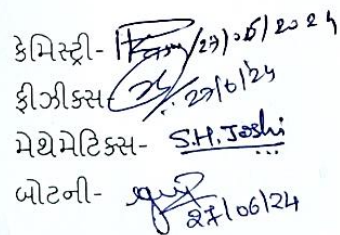 કેમિસ્ટ્રી- 27/06/2024
ફીઝીક્સ- 27/6/24
મેથેમેટિક્સ- S.H. Joshi
બોટની- 27/06/24